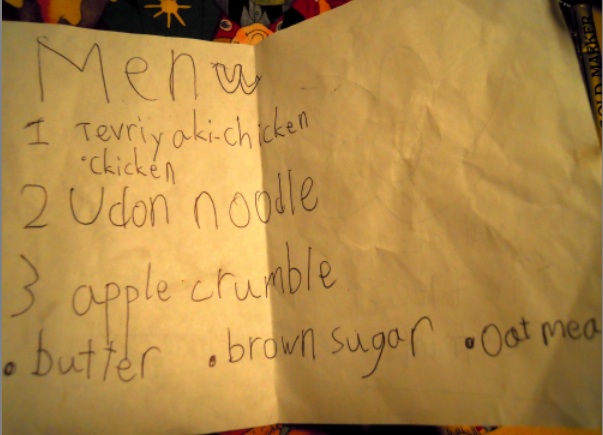 Menu
1 Tevriyaki-chicken
•chicken
2 Udon noodle
3 apple crumble
•butter •brown sugar •Oatmea
OLD MARKER